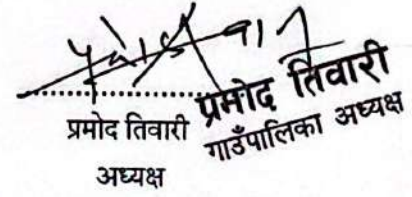 प्रमोद तिवारी
अध्यक्ष
प्रमोद तिवारी
गाउँपालिका अध्यक्ष